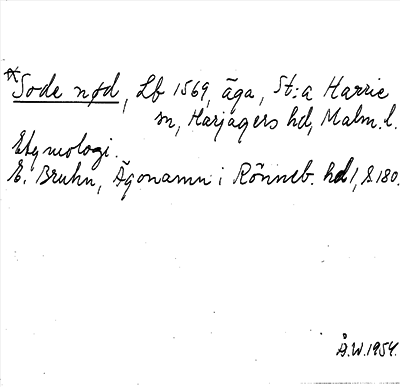 *Sode nød, Lb 1569, äga, St:a Harrie
sn, Harjagers hd, Malm.l.
Etymologi.
E. Bruhn, Ägonamn i Rönneb. hd 1, s. 180.
Å.W. 1954.